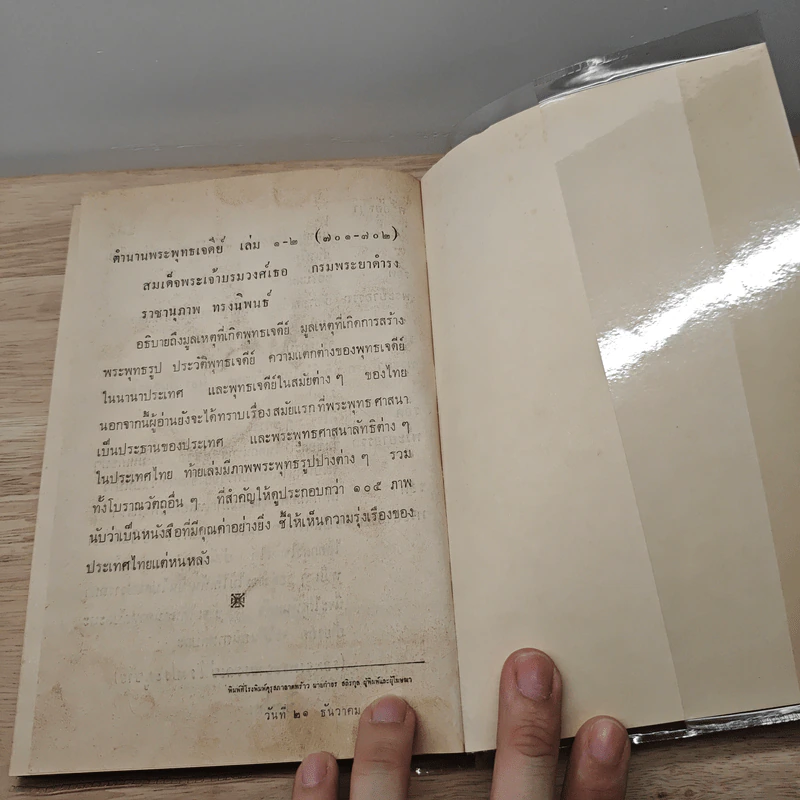 ตำนานพระพุทธเจดีย์ เล่ม ๑-๒ (๗๐๑-๗๐๒)
สมเด็จพระเจ้าบรมวงศ์เธอ กรมพระยาดำรง
ราชานุภาพ ทรงนิพนธ์
อธิบายถึงมูลเหตุที่เกิดพุทธเจดีย์ มูลเหตุที่เกิดการสร้าง
พระพุทธรูป ประวัติพุทธเจดีย์ ความแตกต่างของพุทธเจดีย์
ในนานาประเทศ และพุทธเจดีย์ในสมัยต่าง ๆ ของไทย
นอกจากนี้ผู้อ่านยังจะได้ทราบเรื่องสมัยแรกที่พระพุทธศาสนา
เป็นประธานของประเทศ และพระพุทธศาสนาลัทธิต่าง ๆ
ในประเทศไทย ท้ายเล่มมีภาพพระพุทธรูปปางต่าง ๆ รวม
ทั้งโบราณวัตถุอื่น ๆ ที่สำคัญให้ดูประกอบกว่า ๑๐๕ ภาพ
นับว่าเป็นหนังสือที่มีคุณค่าอย่างยิ่ง ชี้ให้เห็นความรุ่งเรืองของ
ประเทศไทยแต่หนหลัง
พิมพ์ที่โรงพิมพ์คุรุสภาลาดพร้าว นายกำธร สถิรกุล ผู้พิมพ์และผู้โฆษณา
วันที่ ๒๑ ธันวาคม